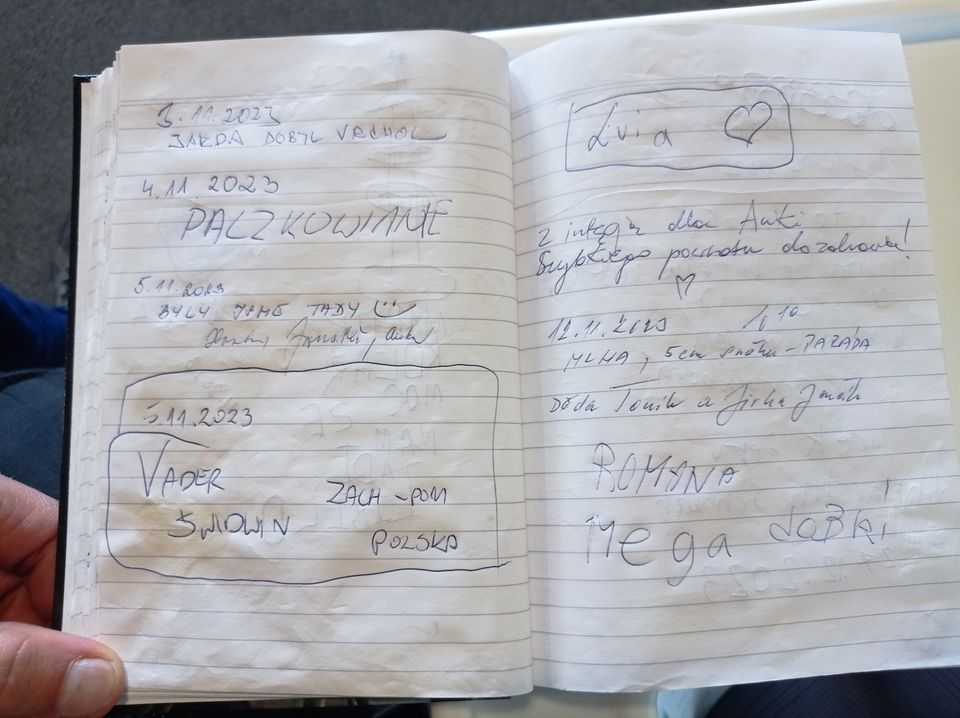 3.11.2023
JARDA DOBYL VRCHOL
4.11.2023
PACZKOWIANIE
5.11.2023
BYLY JSME TADY
5.11.2023
VADER
ŚWIDWIN
ZACH-POM
POLSKA
Livia
Z intęcją dla Anki
Szybkiego powrotu do zdrowia!
12.11.2023
MLHA, 5cm sněhu - PARÁDA
Děda Toník a Jirka
ROMANA
Mega